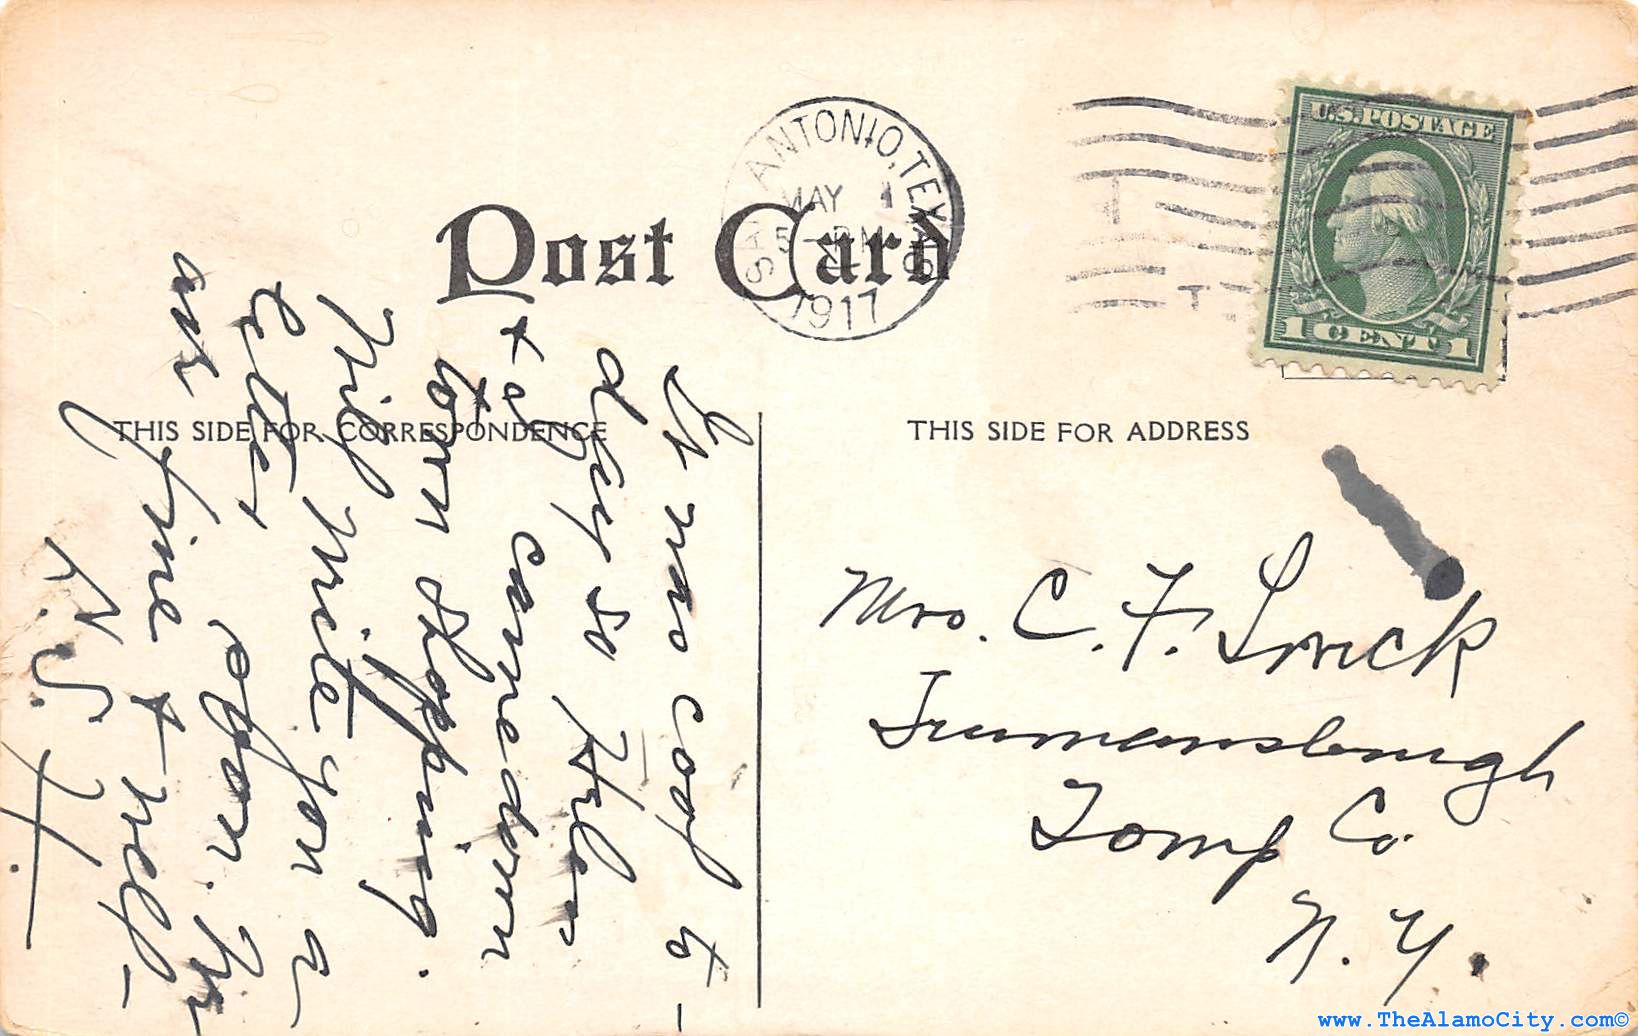 Post Card
SAN ANTONIO, TEXAS
MAY 1
5 - PM
1917
U.S. POSTAGE
1 CENT 1
THIS SIDE FOR CORRESPONDENCE
THIS SIDE FOR ADDRESS
It was cool to-
day so Helen
+ I came down
town shopping.
Will write you a
letter soon. We
are fine + well -
K. S. H.
Mrs. C. F.
Trumansburgh
Tomp Co.
N. Y.
www.TheAlamoCity.com©